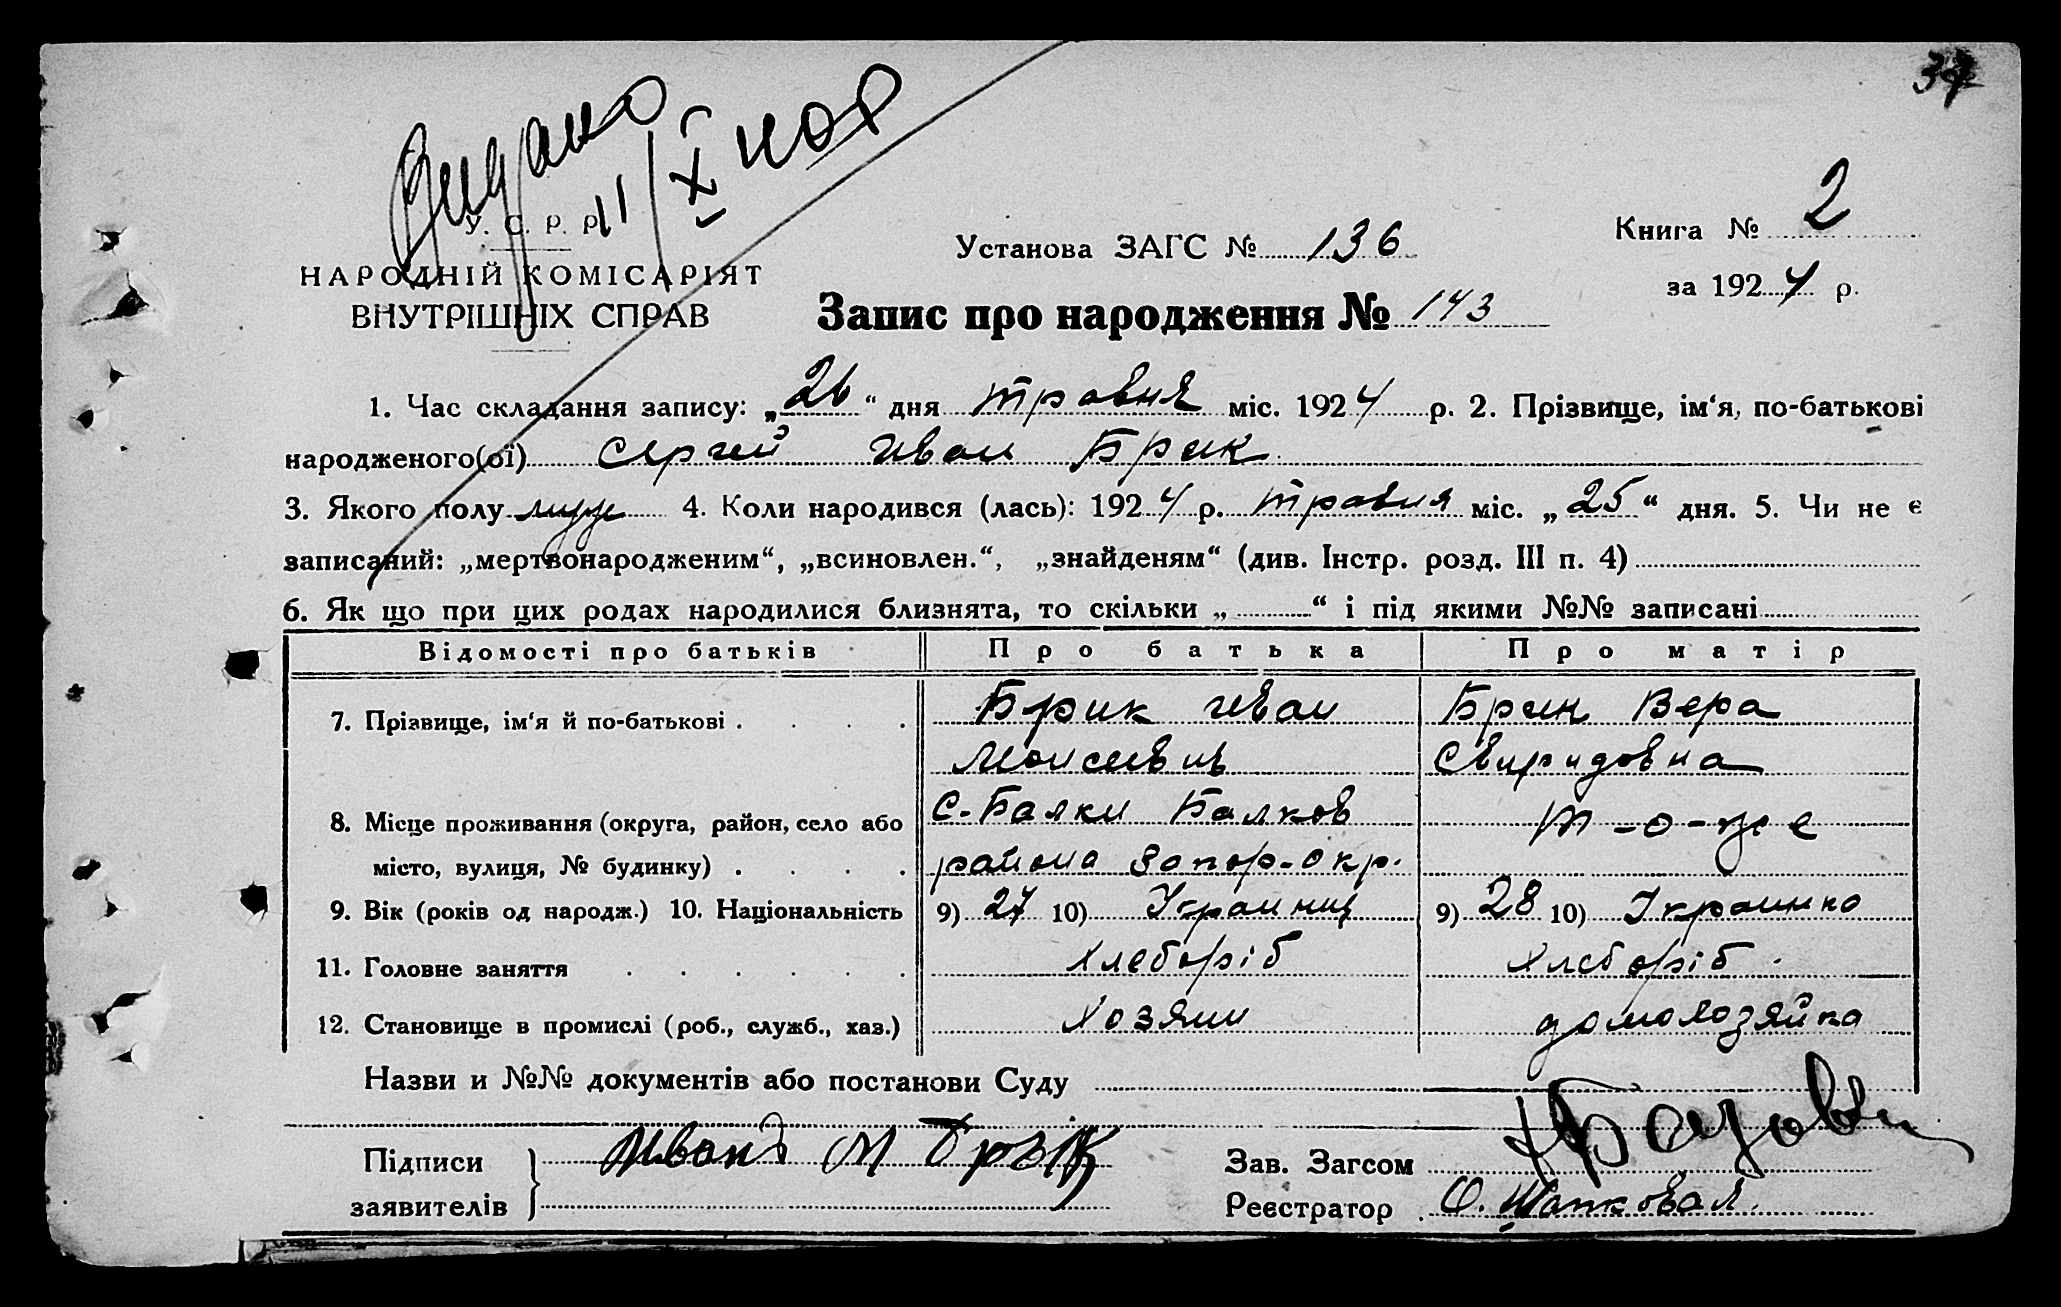 Видано
11/X
37
У. С. Р. Р.
НАРОДНІЙ КОМІСАРІЯТ
ВНУТРІШНІХ СПРАВ
Установа ЗАГС № 136
Книга № 2
за 1924 р.
Запис про народження № 143
1. Час складання запису: „26“ дня травня міс. 1924 р. 2. Прізвище, ім‘я, по-батькові
народженого(ої) Сергей Иван Брик
3. Якого полу муж 4. Коли народився (лась): 1924 р. травня міс. „25“ дня. 5. Чи не є
записаний: „мертвонародженим“, „всиновлен.“, „знайденям“ (див. Інстр. розд. III п. 4)
6. Як що при цих родах народилися близнята, то скільки „ “ і під якими №№ записані
Відомості про батьків Про батька Про матір
7. Прізвище, ім‘я й по-батькові . . . . Брик Иван Брик Вера
Моисеевич Свиридовна
8. Місце проживання (округа, район, село або С-Балки Балков Т-о-же
місто, вулиця, № будинку) . . . . района Запор-окр.
9. Вік (років од народж.) 10. Національність 9) 27 10) Украинец 9) 28 10) Украинка
11. Головне заняття . . . . . . Хлеборіб Хлеборіб
12. Становище в промислі (роб., служб., хаз.) Хозяин домохозяйка
Назви и №№ документів або постанови Суду
Підписи Иванъ М Брик Зав. Загсом
заявителів Реєстратор